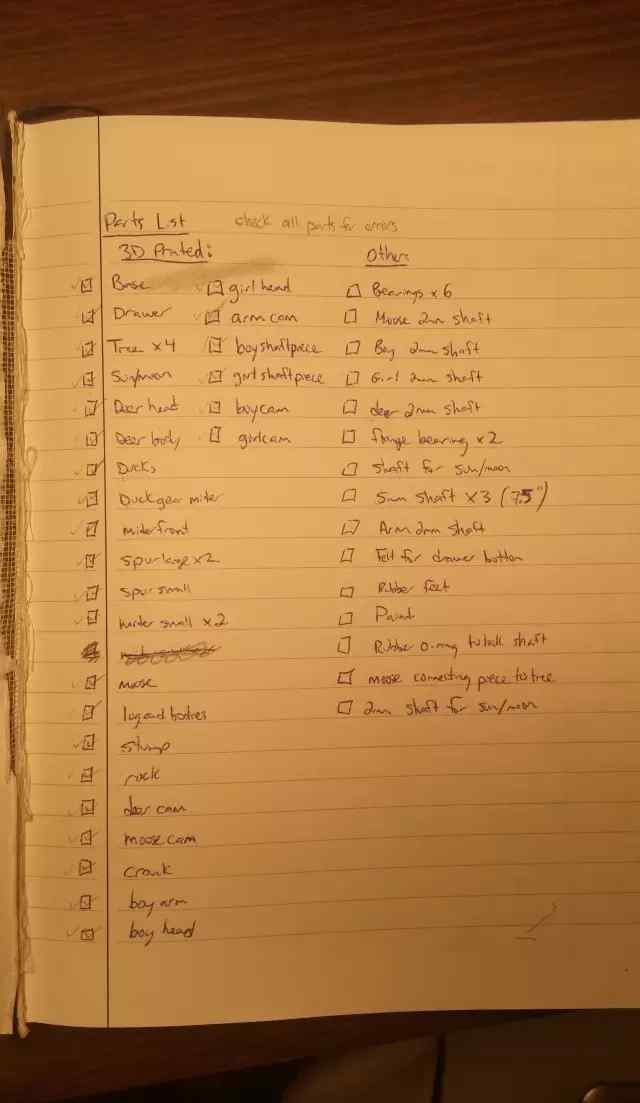 Parts List check all parts for errors
3D Printed:
Base
Drawer
Tree x 4
Sun/moon
Deer head
Deer body
Ducks
Duck gear miter
miter front
spur large x 2
spur small
miter small x 2
moose
log and bodies
stump
rock
deer cam
moose cam
crank
boy arm
boy head
girl head
arm cam
boy shaft piece
girl shaft piece
boy cam
girl cam
Others
Bearings x 6
Moose 2mm shaft
Boy 2mm shaft
Girl 2mm shaft
deer 2mm shaft
flange bearing x 2
shaft for sun/moon
5mm shaft x 3 (7.5")
Arm 2mm shaft
Felt for drawer bottom
Rubber feet
Paint
Rubber o-ring to lock shaft
moose connecting piece to tree
2mm shaft for sun/moon